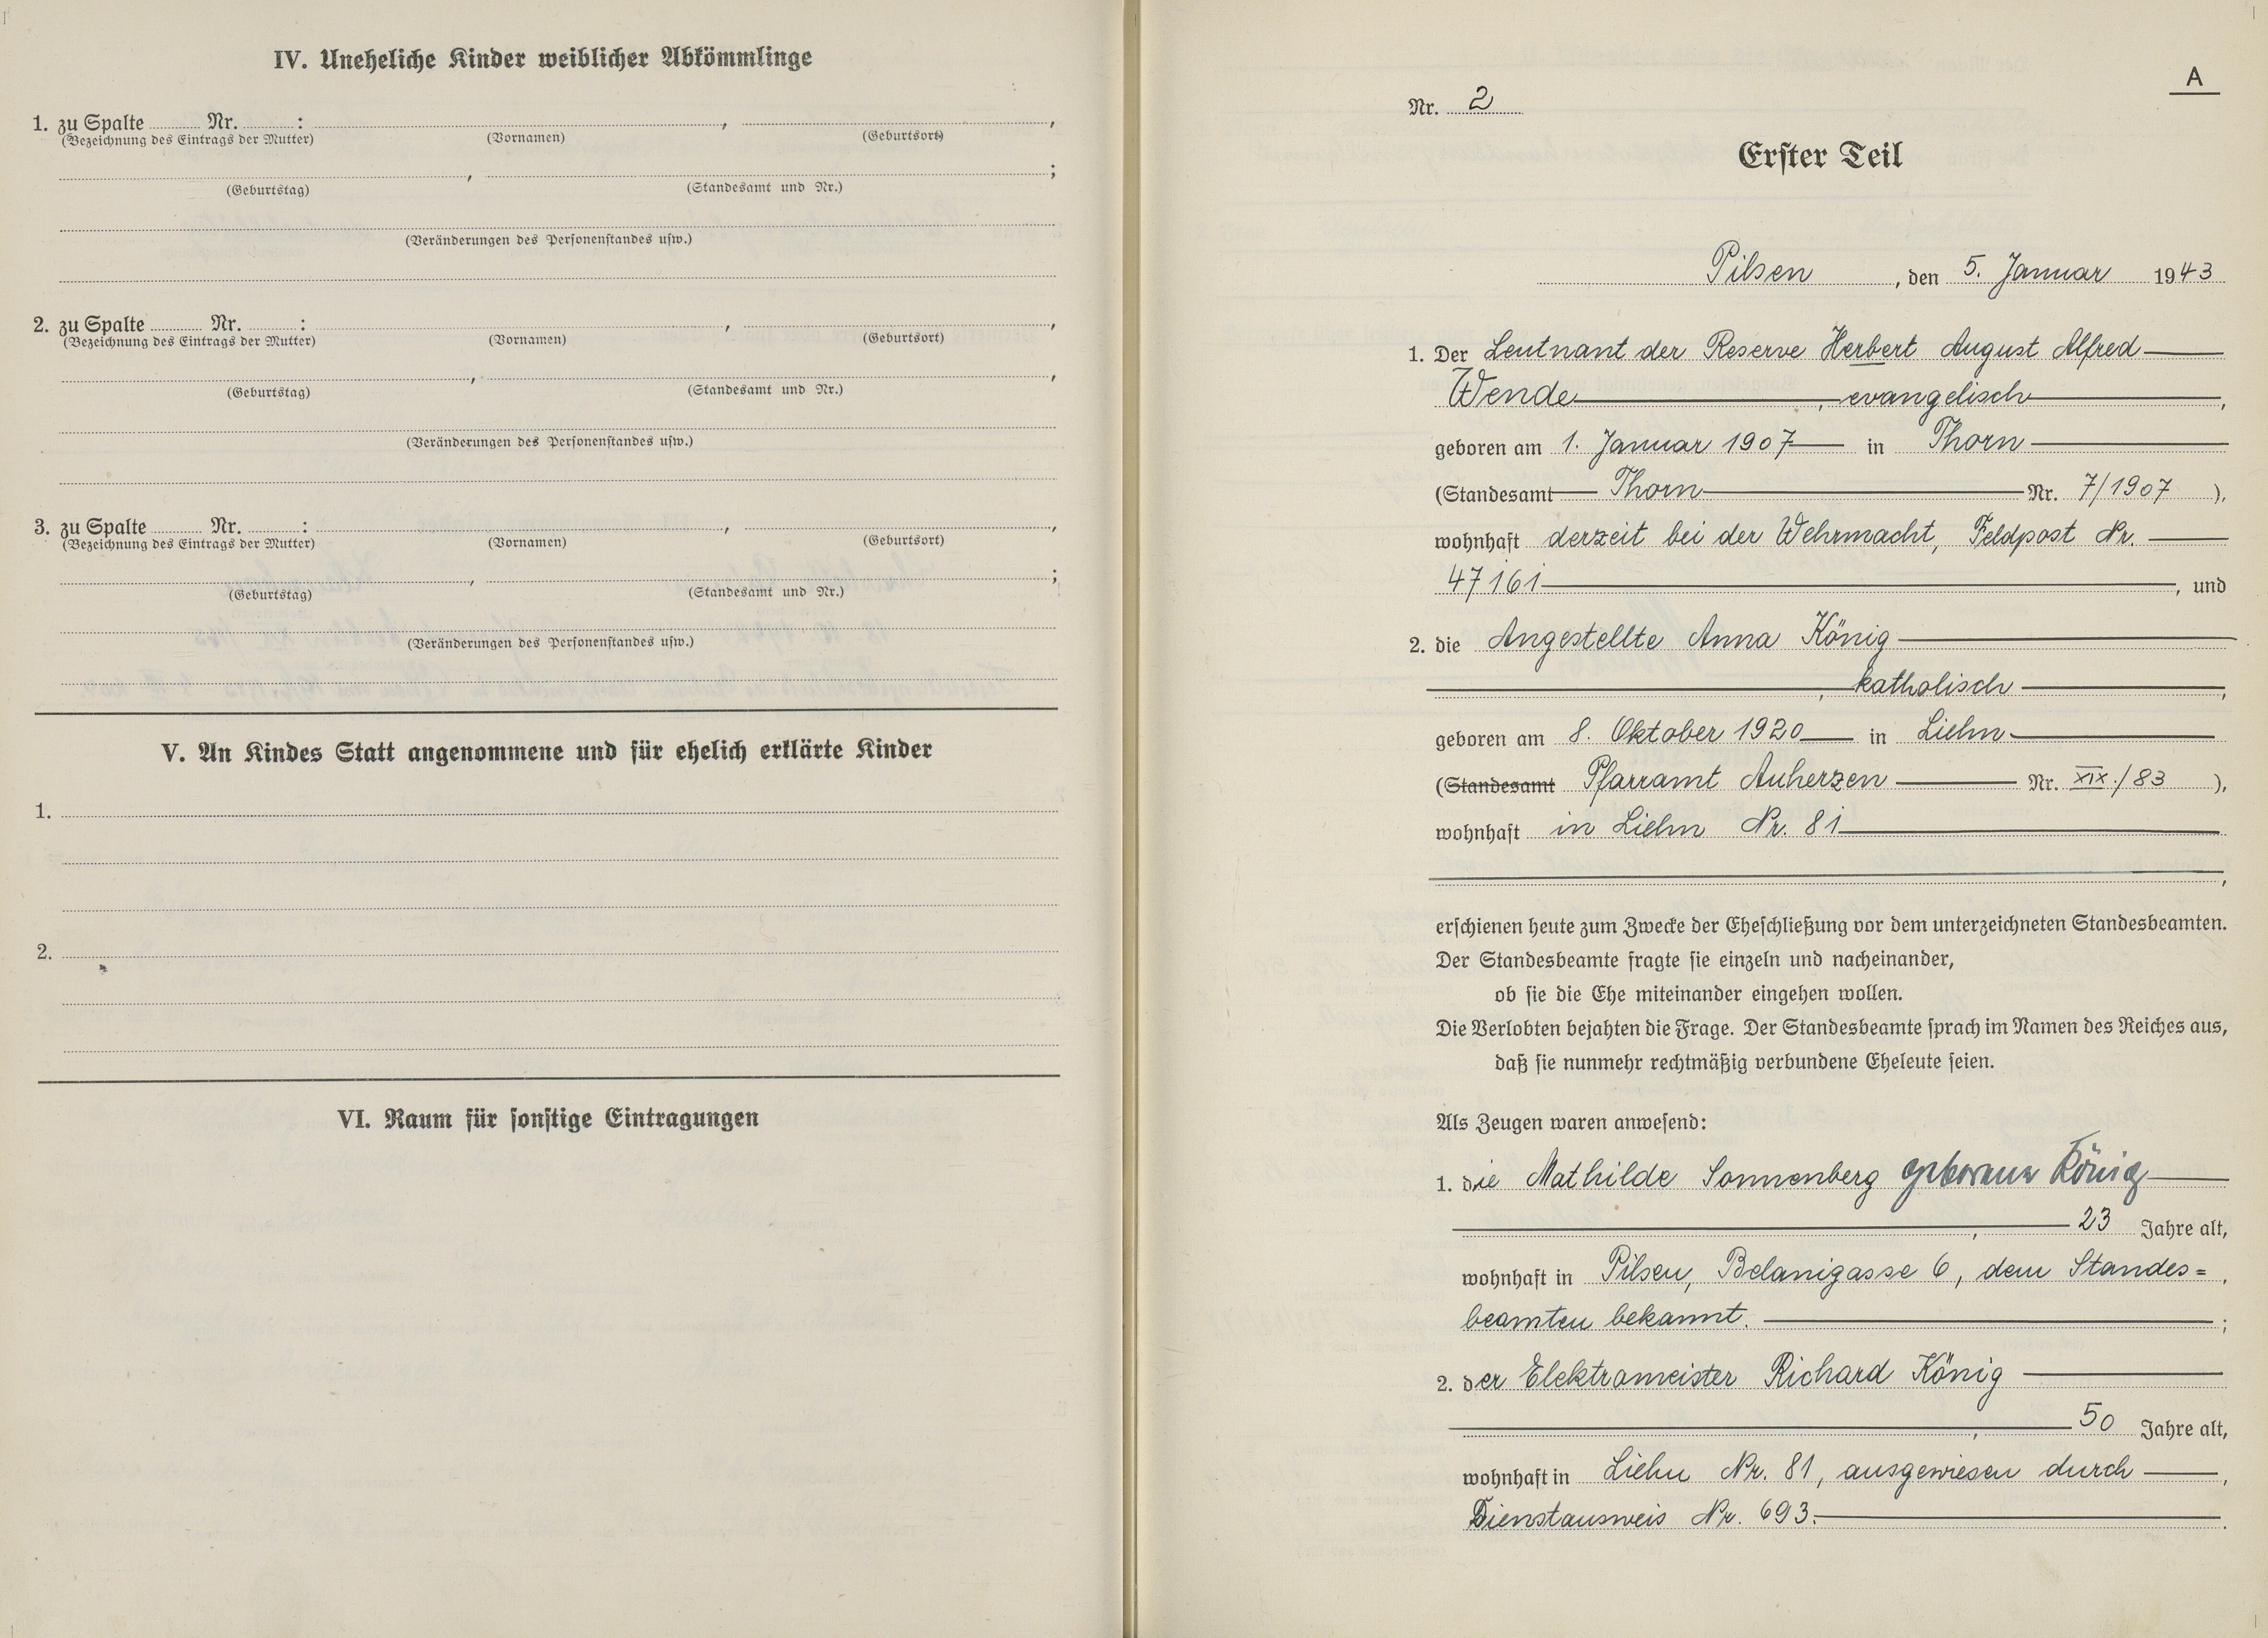 IV. Uneheliche Kinder weiblicher Abkömmlinge
1. zu Spalte ........ Nr. ........ : ........ , ........ ,
(Bezeichnung des Eintrags der Mutter) (Vornamen) (Geburtsort)
........ , ........ ;
(Geburtstag) (Standesamt und Nr.)
(Veränderungen des Personenstandes usw.)
2. zu Spalte ........ Nr. ........ : ........ , ........ ,
(Bezeichnung des Eintrags der Mutter) (Vornamen) (Geburtsort)
........ , ........ ,
(Geburtstag) (Standesamt und Nr.)
(Veränderungen des Personenstandes usw.)
3. zu Spalte ........ Nr. ........ : ........ , ........ ,
(Bezeichnung des Eintrags der Mutter) (Vornamen) (Geburtsort)
........ , ........ ;
(Geburtstag) (Standesamt und Nr.)
(Veränderungen des Personenstandes usw.)
V. An Kindes Statt angenommene und für ehelich erklärte Kinder
1.
2.
VI. Raum für sonstige Eintragungen
A
Nr. 2
Erster Teil
Pilsen , den 5. Januar 1943
1. Der Leutnant der Reserve Herbert August Alfred
Wende , evangelisch ,
geboren am 1. Januar 1907 in Thorn
(Standesamt Thorn Nr. 7/1907 ),
wohnhaft derzeit bei der Wehrmacht, Feldpost Nr.
47161 , und
2. die Angestellte Anna König
, katholisch ,
geboren am 8. Oktober 1920 in Liehn
(Standesamt Pfarramt Auherzen Nr. XIX./83 ),
wohnhaft in Liehn Nr. 81
,
erschienen heute zum Zwecke der Eheschließung vor dem unterzeichneten Standesbeamten.
Der Standesbeamte fragte sie einzeln und nacheinander,
ob sie die Ehe miteinander eingehen wollen.
Die Verlobten bejahten die Frage. Der Standesbeamte sprach im Namen des Reiches aus,
daß sie nunmehr rechtmäßig verbundene Eheleute seien.
Als Zeugen waren anwesend:
1. die Mathilde Sonnenberg geborene König
, 23 Jahre alt,
wohnhaft in Pilsen, Belanigasse 6, dem Standes= ,
beamten bekannt. ;
2. der Elektromeister Richard König
, 50 Jahre alt,
wohnhaft in Liehn Nr. 81, ausgewiesen durch ,
Dienstausweis Nr. 693. .